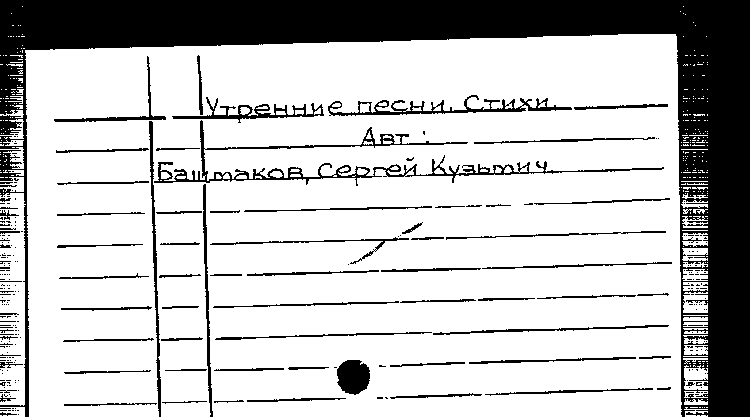 Утренние песни. Стихи.
Авт :
Башмаков, Сергей Кузьмич.